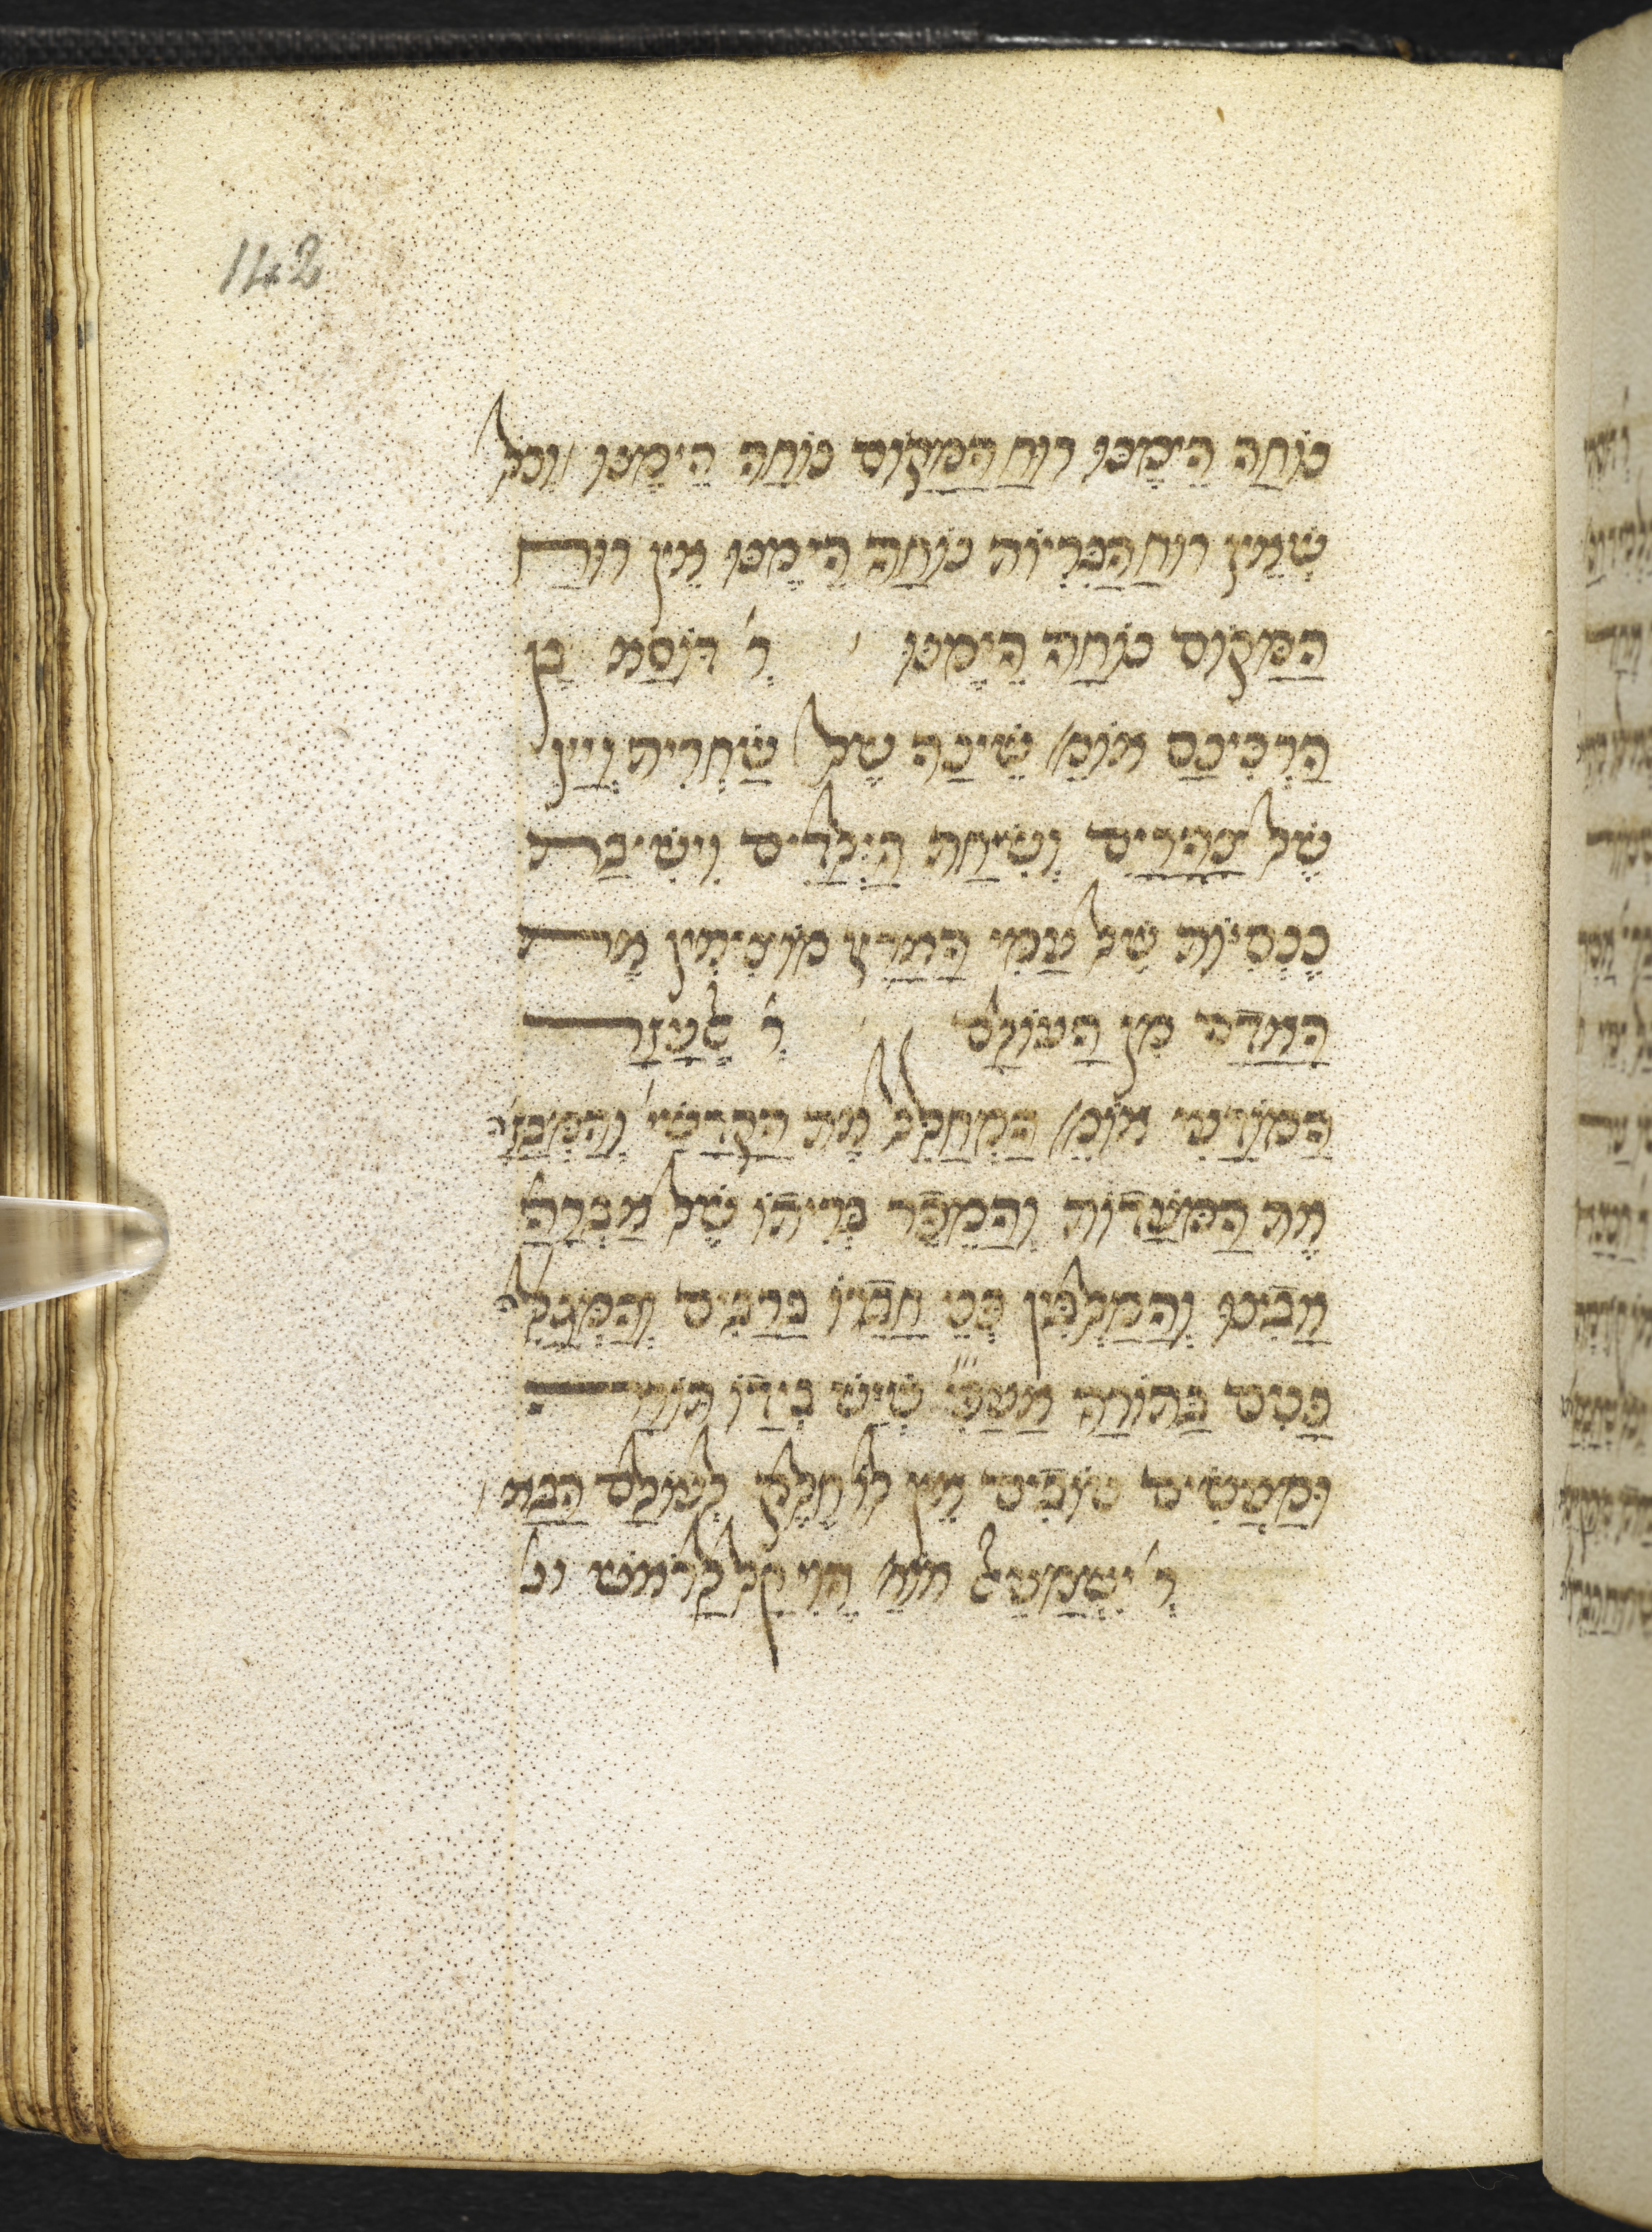 142
נוחה הימנו רוח המקום נוחה הימנו וכל
שאין רוח הבריות נוחה הימנו אין רוח
המקום נוחה הימנו ׳ ר׳ דוסא בן
הרכינס אומ׳ שינה של שחרית ויין
של צהרים ושיחת הילדים וישיבת
כנסיות של עמי הארץ מוציאין את
האדם מן העולם ׳ ר׳ לעזר
המודעי אומ׳ המחלל את הקדשי׳ והמבזה
את המועדות והמפר בריתו של אברהם
אבינו והמלבין פני חבירו ברבים והמגלה
פנים בתורה אעפ״י שיש בידו תורה
ומעשים טובים אין לו חלק לעולם הבא ׳
ר׳ ישמעאל אומ׳ הוי קל לראש ונ׳